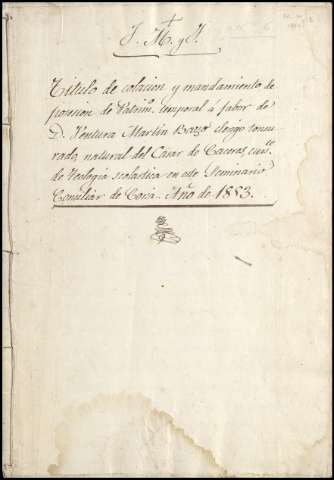 J. M. y J.
Titulo de colacion y mandamiento de
posesion de Patrim. temporal á fabor de
D. Ventura Martin Brazo clerigo tonsu-
rado, natural del Casar de Caceres, curs.te
de Teologia scolastica en este Seminario
Conciliar de Coria. Año de 1853.